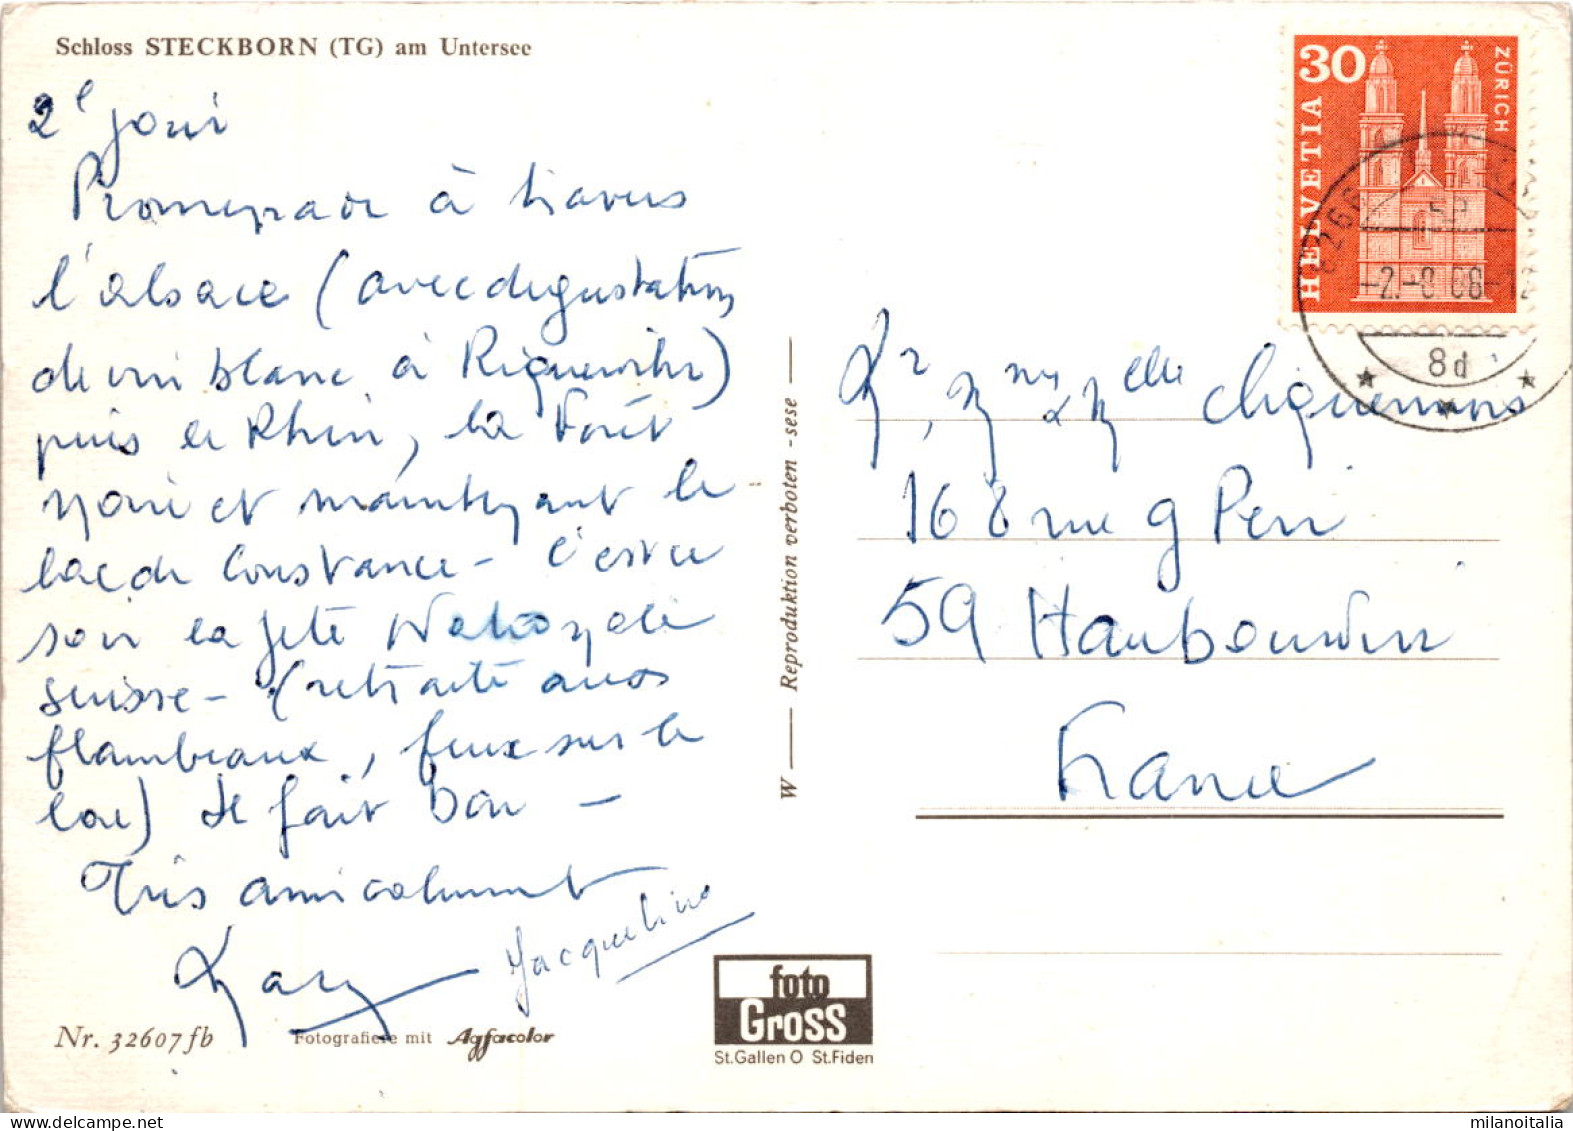 Schloss STECKBORN (TG) am Untersee
2e jour
Promenade à travers
l'alsace (avec degustation
de vin blanc à Riquewihr)
puis le Rhin, la Forêt
noire et maintenant le
lac de Constance - C'est ce
soir la fete Nationale
suisse - (retraite aux
flambeaux, feux sur le
lac) Il fait bon -
Très amicalement
Jacqueline
Nr. 32607 fb
Fotografiere mit Agfacolor
W — Reproduktion verboten - sese —
foto
GROSS
St.Gallen O St.Fiden
30
HELVETIA
ZÜRICH
8266
8d
Mr, Mme & Melle
168 rue g Peri
59 Haubourdin
France
milanoitalia